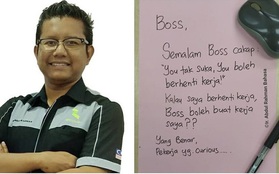 Boss,
Semalam Boss cakap
"You tak suka, You boleh
berhenti kerja!"
Kalau saya berhenti kerja,
Boss boleh buat kerja
saya??
Yang Benar,
Pekerja yg. Curious.....